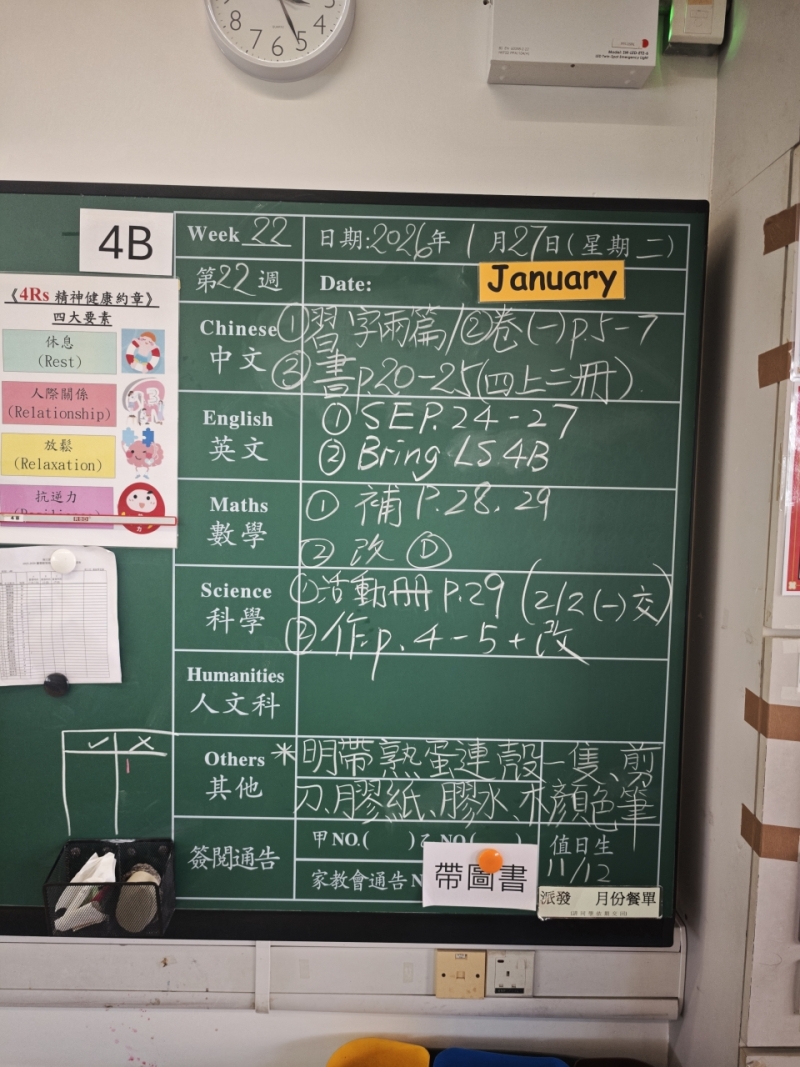 8
7
6
5
4
4B
Week 22
日期:2026年 1月27日(星期二)
第22週
Date:
January
《4Rs 精神健康約章》
四大要素
休息
(Rest)
人際關係
(Relationship)
放鬆
(Relaxation)
抗逆力
Chinese
中文
①習字兩篇/②卷(一)p.5-7
③書p.20-25(四上二冊)
English
英文
① SEP.24-27
② Bring LS4B
Maths
數學
① 補 P.28, 29
② 改 Ⓓ
Science
科學
①活動冊 p.29 (2/2(一)交)
②作p.4-5+改
Humanities
人文科
Others
其他
*明帶熟蛋連殼一隻、剪
刀、膠紙、膠水、木顏色筆
✓ ×
簽閱通告
甲NO.( ) NO.( )
家教會通告N
值日生
11/12
帶圖書
派發 月份餐單